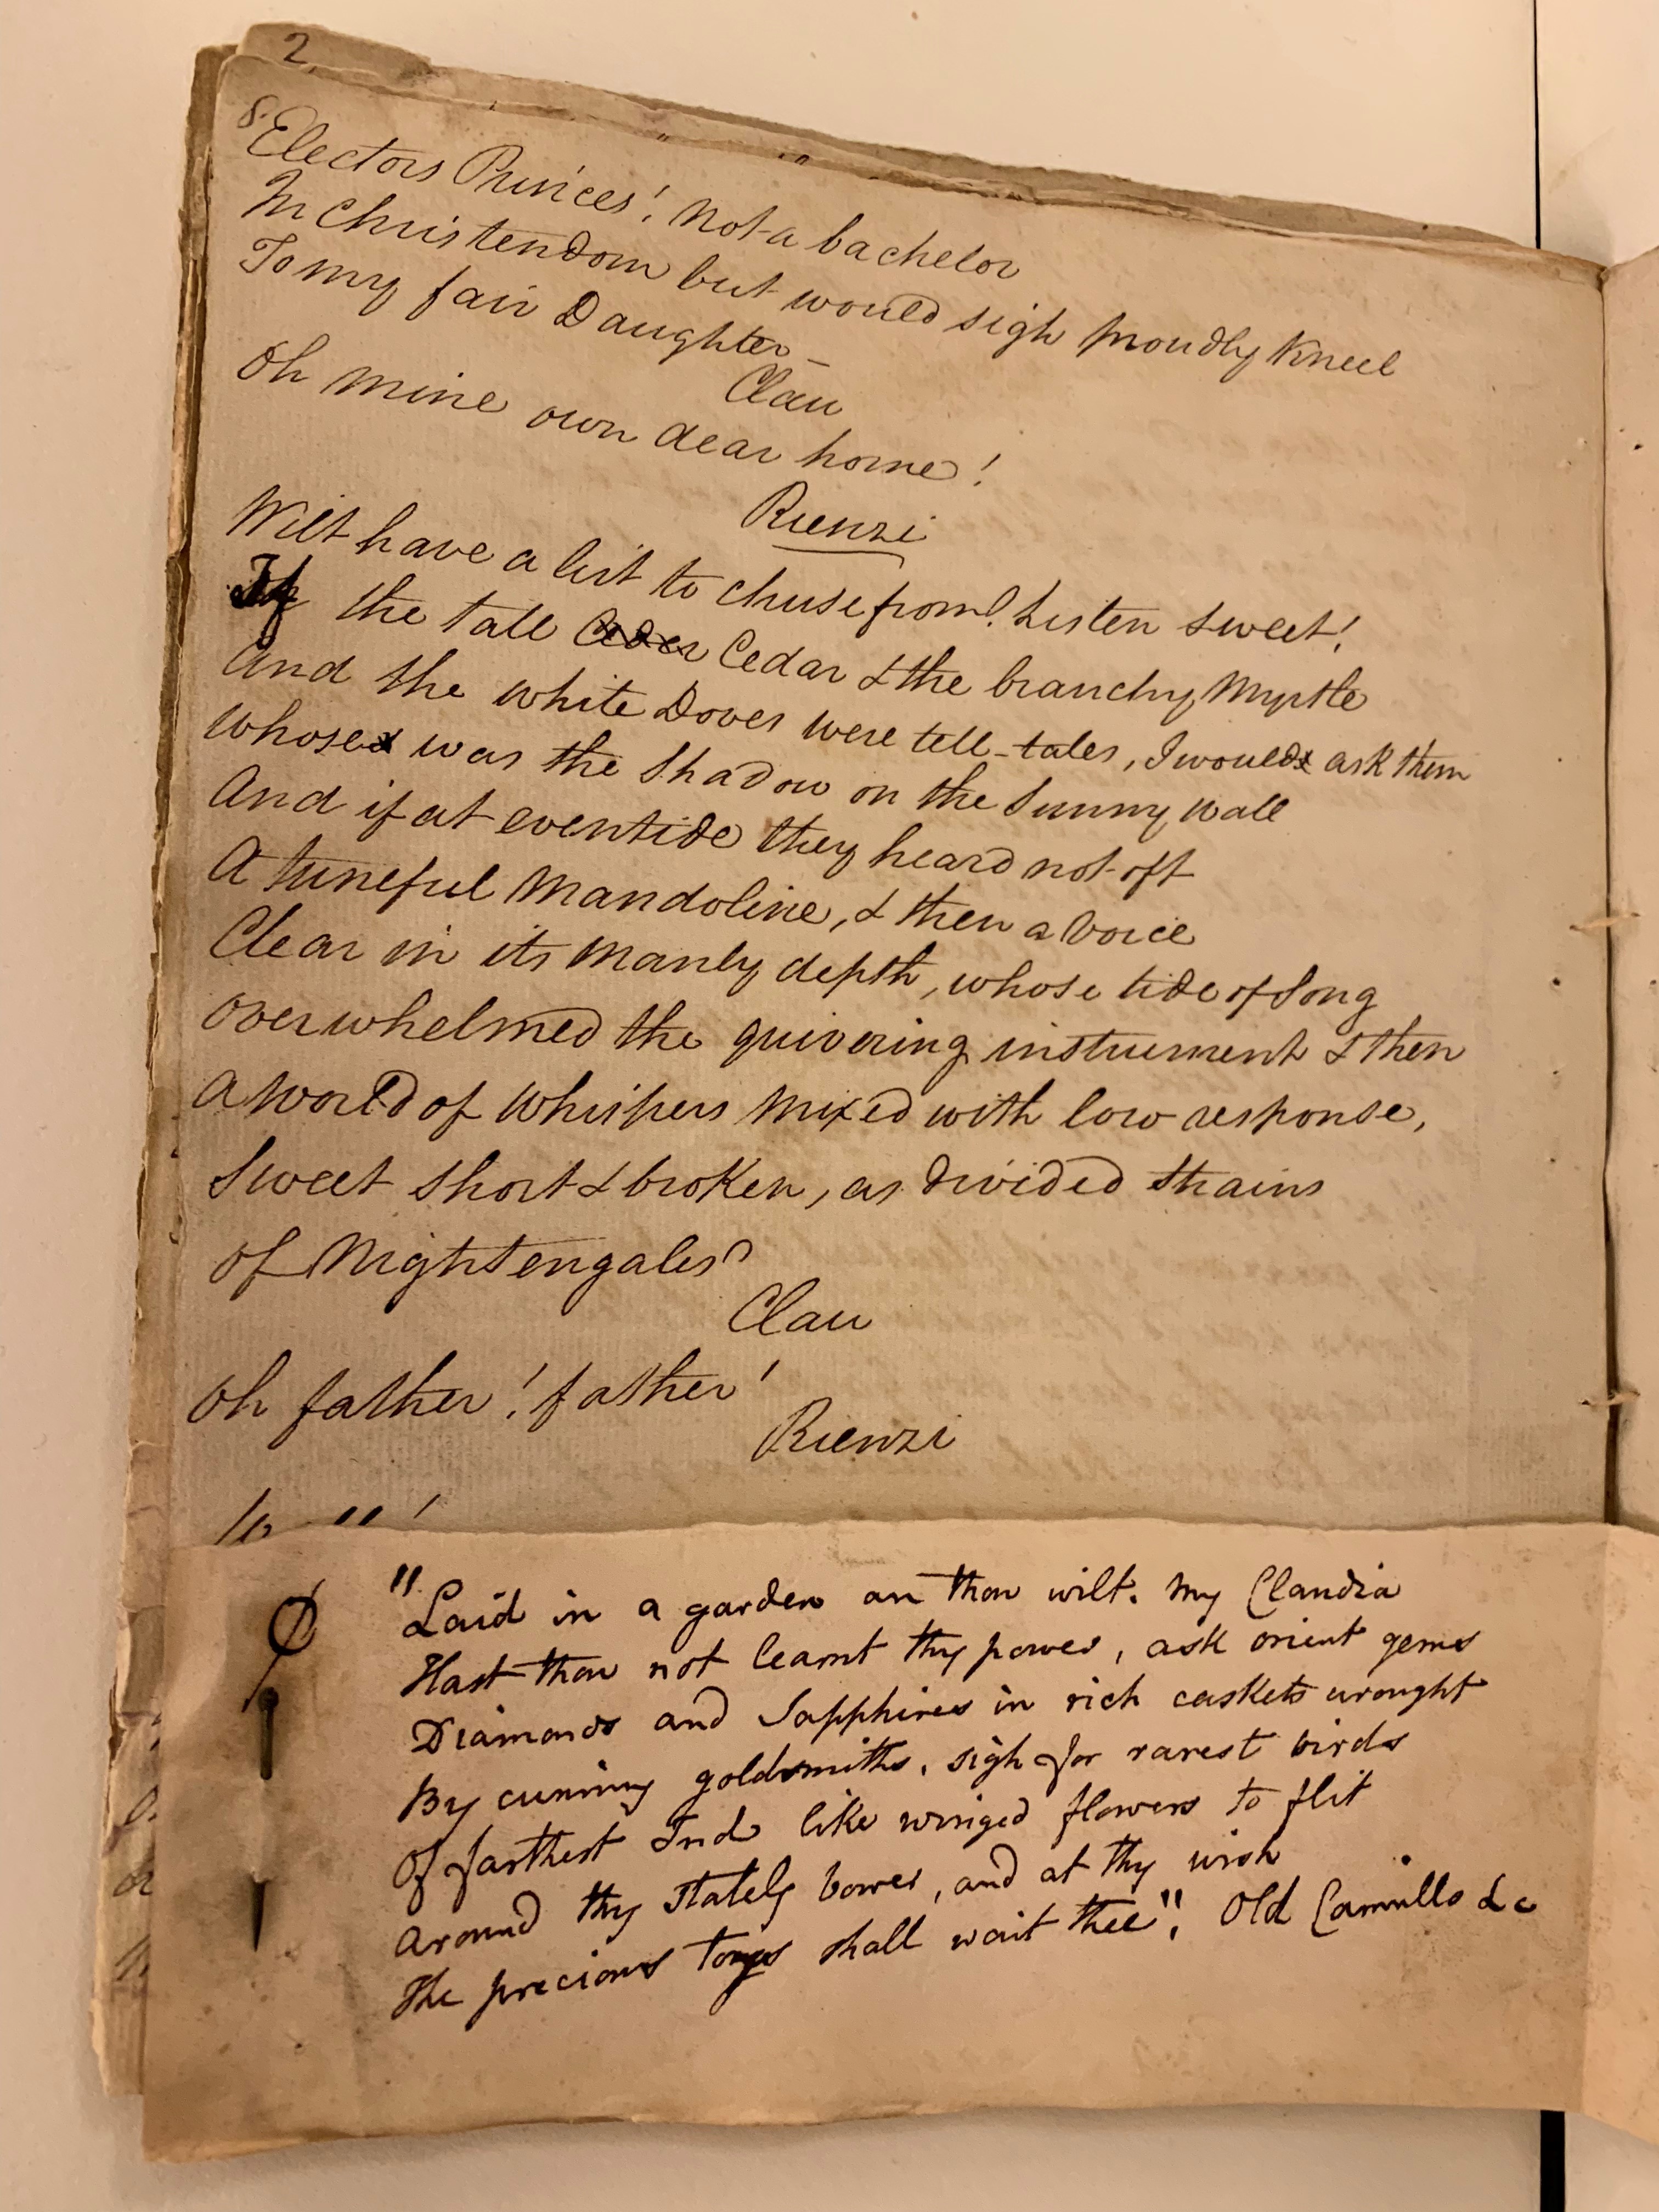 2
8.
Electors Princes! Not a bachelor
In Christendom but would sigh proudly kneel
To my fair Daughter –
Clau
Oh mine own dear home!
Rienzi
Wilt have a list to chuse from? Listen sweet!
If the tall Ceder Cedar & the branchy Myrtle
And the white Doves were tell-tales, I would ask them
Whose was the Shadow on the Sunny wall
And if at eventide they heard not oft
A tuneful Mandoline, & then a Voice
Clear in its Manly depth, whose tide of Song
Overwhelmed the quivering instrument & then
A World of Whispers Mixed with low response,
Sweet Short & broken, as divided Strains
Of Nightengales?
Clau
Oh father! father!
Rienzi
"Laid in a garden an thou wilt. My Claudia
Hast thou not learnt thy power, ask orient gems
Diamonds and Sapphires in rich caskets wrought
By cunning goldsmiths, sigh for rarest birds
Of farthest Ind like winged flowers to flit
Around thy Stately bower, and at thy wish
The precious toys shall wait thee". Old Camillo &c